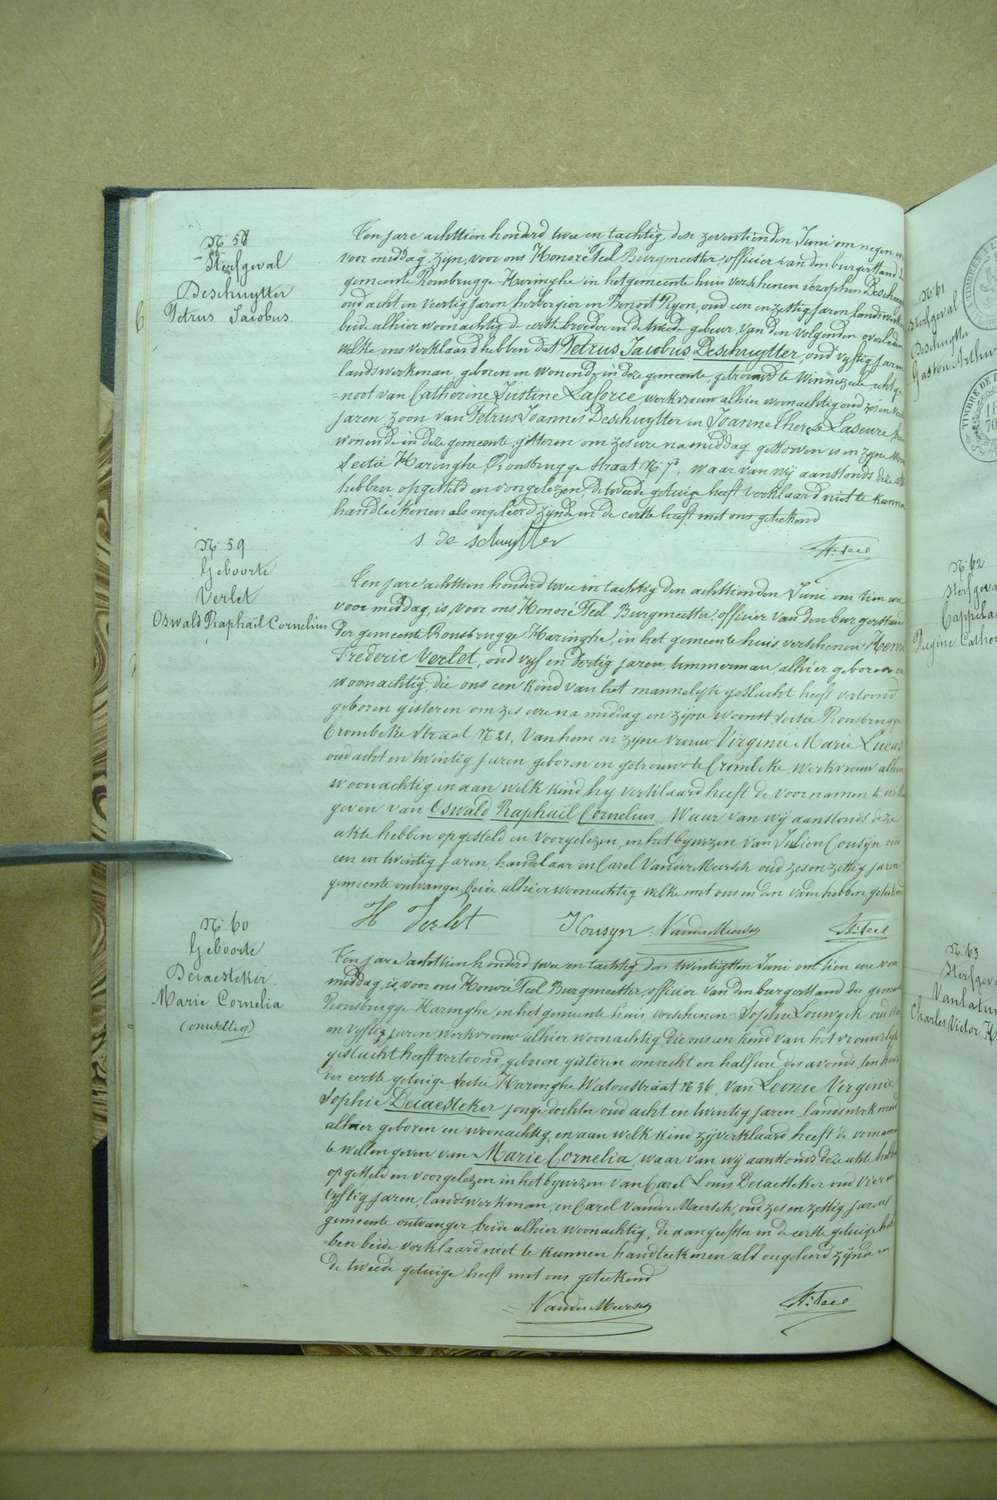 N. 58
Sterfgeval
Deschuytter
Petrus Jacobus.
Ten jare achttien honderd twee en tachtig, den zeventienden Juni om negen
voor middag, zyn, voor ons Honoré Teel Burgmeester officier van den burgerstand
gemeente Rousbrugge-Haringhe in het gemeente huis verschenen Seraphin Deschuy
oud acht en veertig jaren herbergier en Benoit Ryon, oud een en zestig jaren landswerk
beide alhier woonachtig de eerste broeder en de tweede gebuur van den volgenden overleden
welke ons verklaard hebben dat Petrus Jacobus Deschuytter, oud vyftig jaren
landswerkman, geboren en wonende in deze gemeente, getrouwd te Winnezeele, echtge
=noot van Catherine Justine Laforce, werkvrouw alhier woonachtig oud zes en
jaren zoon van Petrus Joannes Deschuytter en Joanne Therese Laseure
wonende in deze gemeente, gisteren om zes ure na middag gestorven is in zyne
Sectie Haringhe Rousbrugge straat N. 7, waar van wij aanstonds deze akte
hebben opgesteld en voorgelezen, de tweede getuige heeft verklaard niet te kunnen
handteekenen als ongeleerd zynde en de eerste heeft met ons geteekend
s de schuytter
H. Teel
N. 59
Geboorte
Verlet
Oswald Raphaïl Cornelius
Ten jare achttien honderd twee en tachtig den achttienden Juni om tien ure
voor middag, is, voor ons Honoré Teel Burgmeester, officier van den burgerstand
der gemeente Rousbrugge-Haringhe, in het gemeente huis, verschenen Henri
Frederic Verlet, oud vyf en dertig jaren, timmerman, alhier geboren en
woonachtig, die ons een kind van het mannelyk geslacht heeft vertoond
geboren gisteren om zes ure na middag en zyne woonst sectie Rousbrugge
Crombeke straat N. 21, van hem en zyne vrouw Virginie Marie Lucas
oud acht en twintig jaren geboren en getrouwd te Crombeke, werkvrouw alhier
woonachtig en aan welk kind hy verklaard heeft de voornamen te willen
geven van Oswald Raphaïl Cornelius, Waar van wij aanstonds deze
akte hebben opgesteld en voorgelezen, in het bywezen van Julien Cousyn oud
een en twintig jaren, handelaar en Carel Vander Meersch oud zes en zestig jaren
gemeente ontvanger, beide alhier woonachtig welke met ons en den vader hebben geteekend
H Verlet
J Cousyn
Vander Meersch
H. Teel
N. 60
Geboorte
Decaesteker
Marie Cornelia
(onwettig)
Ten jare achttien honderd twee en tachtig den twintigsten Juni om tien ure voor
middag, is, voor ons Honoré Teel Burgmeester, officier van den burgerstand der gemeente
Rousbrugge Haringhe, in het gemeente huis verschenen Sophie Louwyck oud
en vyftig jaren werkvrouw alhier woonachtig, die ons een kind van het vrouwelyk
geslacht heeft vertoond, geboren gisteren om acht en half ure des avonds, ten huize
der eerste getuige sectie Haringhe Watoustraat N. 36, van Leonie Virginie
Sophie Decaesteker, jonge dochter oud acht en twintig jaren, landswerkmeid
alhier geboren en woonachtig, en aan welk kind zy verklaard heeft de voornamen
te willen geven van Marie Cornelia, waar van wij aanstonds deze akte hebben
opgesteld en voorgelezen in het bywezen van Carel Louis Decaesteker oud vier en
vyftig jaren, landswerkman, en Carel Vander Meersch, oud zes en zestig jaren
gemeente ontvanger beide alhier woonachtig, de aangeefster en de eerste getuige heb
ben beide verklaard niet te kunnen handteekenen als ongeleerd zynde en
de tweede getuige heeft met ons geteekend
Vander Meersch
H. Teel
N. 61
Sterfgeval
Deschuytter
Gaston Arthur
TIMBRE DE
N. 62
Sterfgeval
N. 63
Sterfgeval
Charles Victor